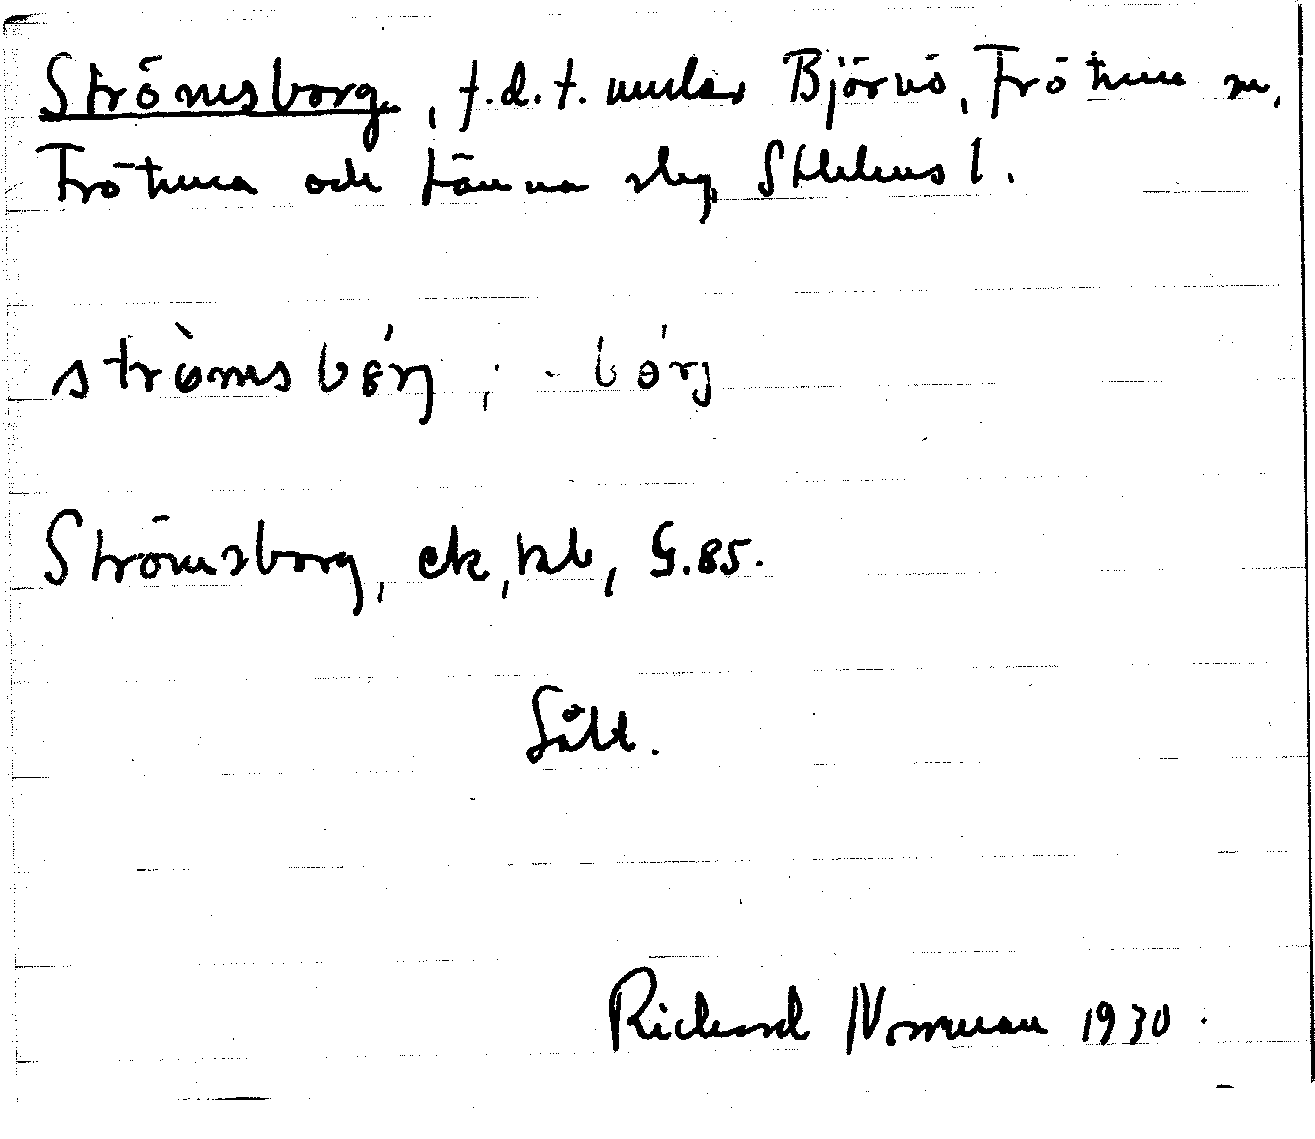 Strömsborg, f.d.t. under Björnö, Frötuna sn,
Frötuna och Länna slg, Sthlms l.
strö̀msbórj ; - bórj
Strömsborg, ek, kbl, G.85.
Såld.
Richard Norrman 1930.